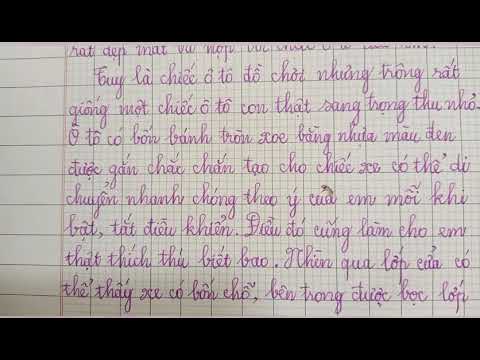 rất đẹp mắt và hợp với chiếc ô tô
Tuy là chiếc ô tô đồ chơi nhưng trông rất
giống một chiếc ô tô con thật sang trọng thu nhỏ.
Ô tô có bốn bánh tròn xoe bằng nhựa màu đen
được gắn chắc chắn tạo cho chiếc xe có thể di
chuyển nhanh chóng theo ý của em mỗi khi
bật, tắt điều khiển. Điều đó cũng làm cho em
thật thích thú biết bao. Nhìn qua lớp cửa có
thể thấy xe có bốn chỗ, bên trong được bọc lớp